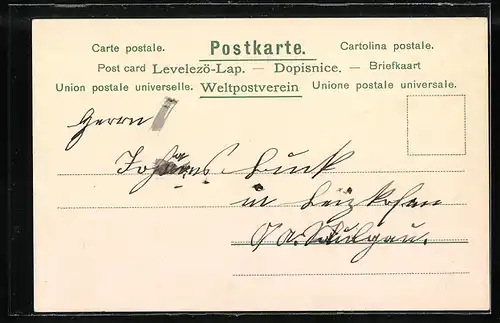 Carte postale. Postkarte. Cartolina postale.
Post card Levelezö-Lap. — Dopisnice. — Briefkaart
Union postale universelle. Weltpostverein Unione postale universale.
Herrn
Johannes Buck
in Beizkofen
O. A. Saulgau.